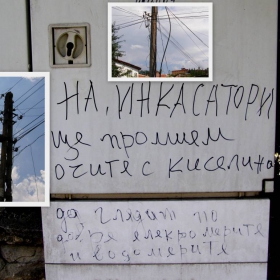 НА, ИНКАСАТОРИ
ще промием
очите с киселина
да гледат по
добре елекромерите
и водомерите